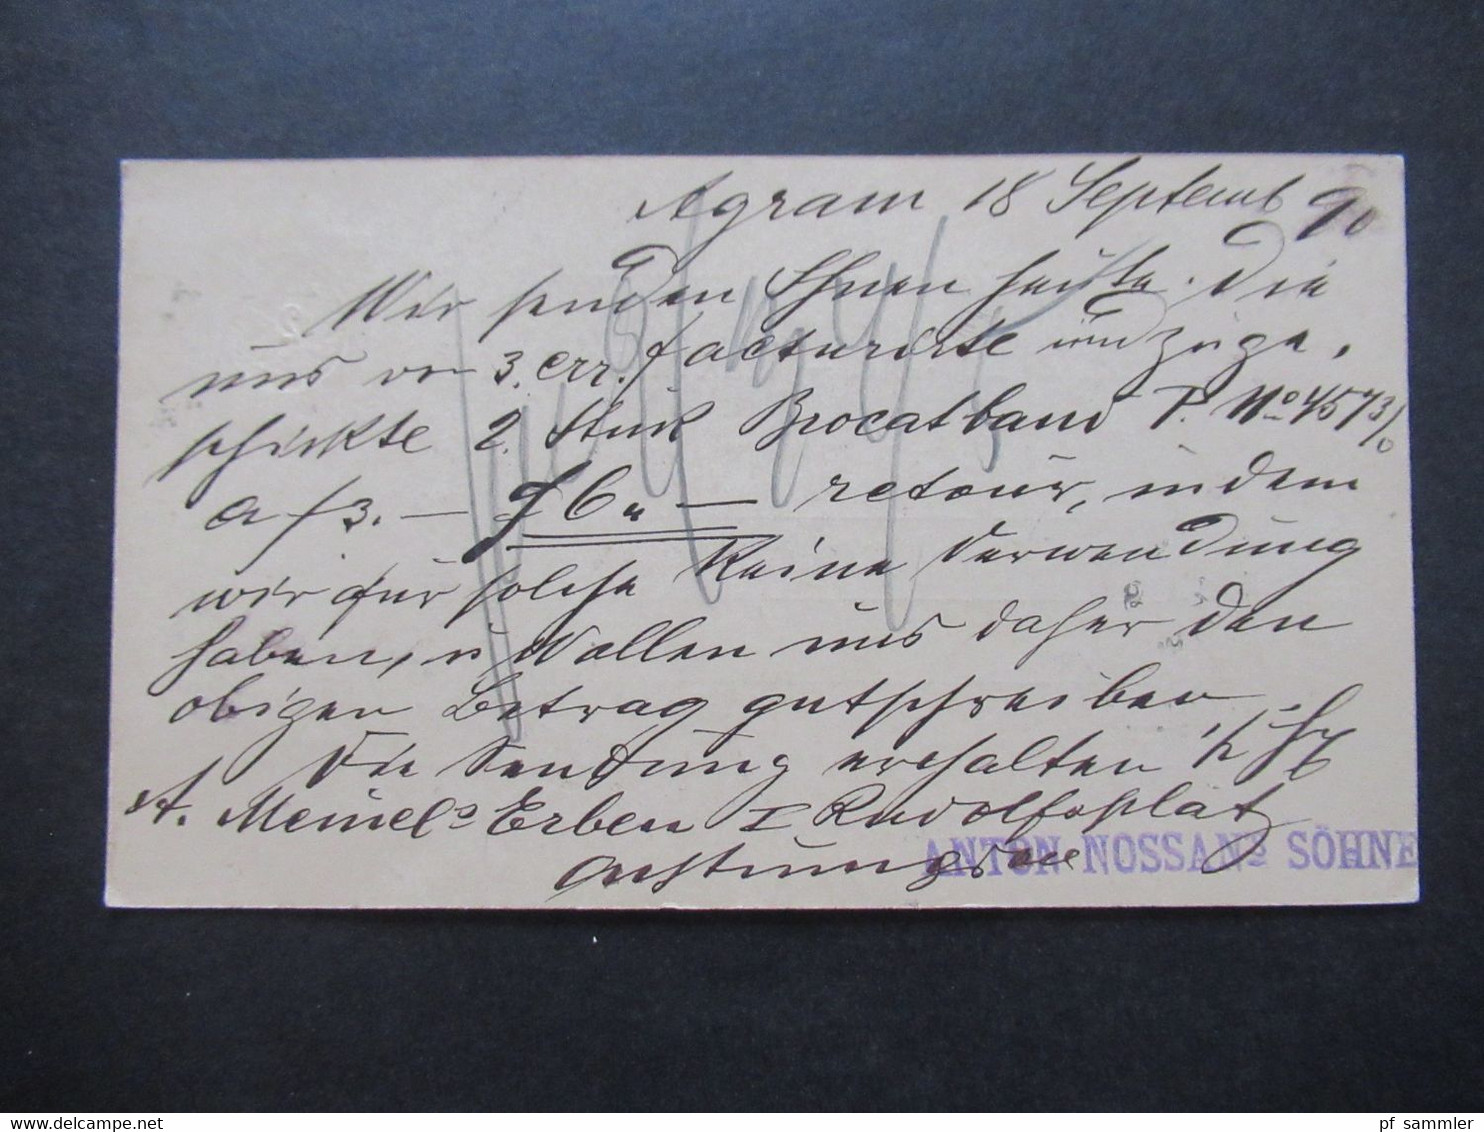 Agram 18 Septemb 90
Wir senden Ihnen heute die
uns von 3. crr. facturirte und zuge-
schickte 2. Stück Brocatband P. No 4573/0
a f 3. — f 6„ — retour, indem
wir für solche keine Verwendung
haben, u wollen uns daher den
obigen Betrag gutschreiben.
Die Sendung erhalten
A. Meinel's Erben I Rudolfsplatz
Achtungsvoll
ANTON NOSSANS SÖHNE
www.delcampe.net
pf_sammler